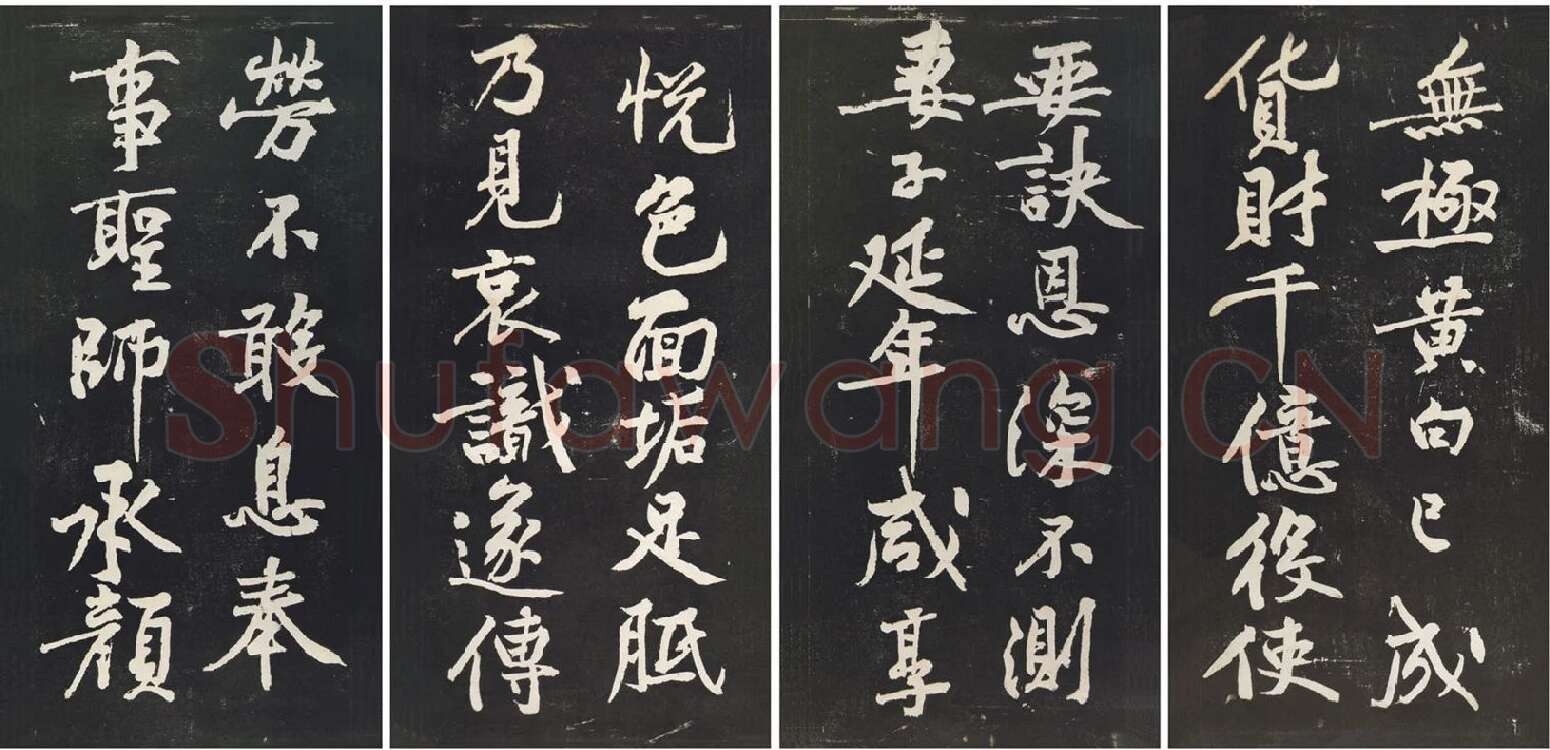 勞不敢息奉
事聖師承顏
悅色面垢足胝
乃見哀識遂傳
要訣恩深不測
妻子延年咸享
無極黃白已成
貨財千億役使
Shufawang.CN